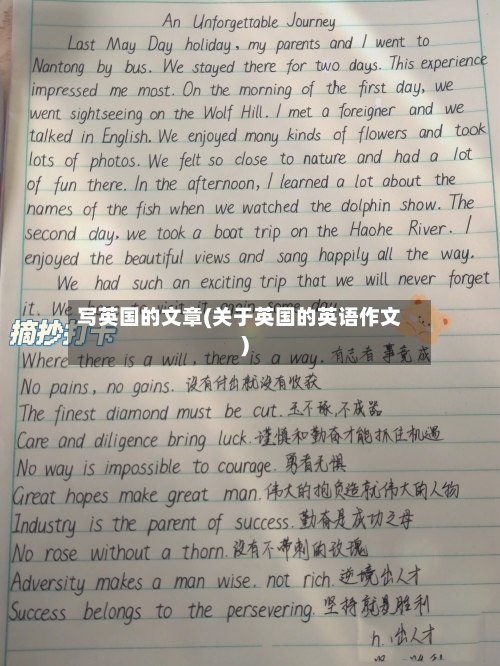 An Unforgettable Journey
Last May Day holiday, my parents and I went to
Nantong by bus. We stayed there for two days. This experience
impressed me most. On the morning of the first day, we
went sightseeing on the Wolf Hill. I met a foreigner and we
talked in English. We enjoyed many kinds of flowers and took
lots of photos. We felt so close to nature and had a lot
of fun there. In the afternoon, I learned a lot about the
names of the fish when we watched the dolphin show. The
second day, we took a boat trip on the Haohe River. I
enjoyed the beautiful views and sang happily all the way.
We had such an exciting trip that we will never forget
it. We
写英国的文章(关于英国的英语作文
)
摘抄打卡
Where there is a will, there is a way. 有志者事竟成
No pains, no gains. 没有付出就没有收获
The finest diamond must be cut. 玉不琢,不成器
Care and diligence bring luck. 谨慎和勤奋才能抓住机遇
No way is impossible to courage. 勇者无惧
Great hopes make great man. 伟大的抱负造就伟大的人物
Industry is the parent of success. 勤奋是成功之母
No rose without a thorn. 没有不带刺的玫瑰
Adversity makes a man wise, not rich. 逆境出人才
Success belongs to the persevering. 坚持就是胜利
h. 出人才